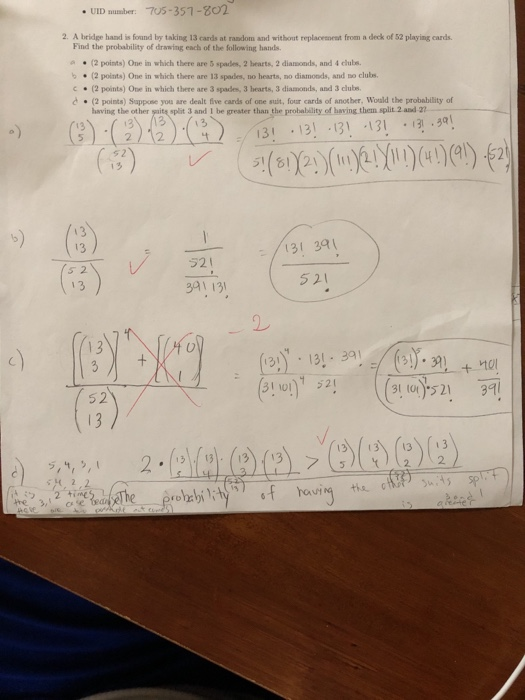 • UID number: 705-357-802
2. A bridge hand is found by taking 13 cards at random and without replacement from a deck of 52 playing cards.
Find the probability of drawing each of the following hands.
a • (2 points) One in which there are 5 spades, 2 hearts, 2 diamonds, and 4 clubs.
b • (2 points) One in which there are 13 spades, no hearts, no diamonds, and no clubs.
c • (2 points) One in which there are 3 spades, 3 hearts, 3 diamonds, and 3 clubs.
d • (2 points) Suppose you are dealt five cards of one suit, four cards of another. Would the probability of
having the other suits split 3 and 1 be greater than the probability of having them split 2 and 2?
a) (13 5) · (13 2) · (13 2) · (13 4) = 13! · 13! · 13! · 13! · 13! · 39!
(52 13) ✓ 5!(8!)(2!)(11!)(2!)(11!)(4!)(9!) · 52!
b) (13 13) = 1 = 13! 39!
(52 13) ✓ 52! 52!
39! 13!
-2
c) [(13 3)]⁴ + [(40 1)] = (13!)⁴ · 13! · 39! = (13!)⁵ · 39! + 40!
(52 13) (3! 10!)⁴ 52! (3! 10!)⁴ · 52! 39!
d) 5,4,3,1 2 · (13 5) · (13 4) · (13 3) · (13 1) > ✓ (13 5)(13 4)(13 2)(13 2)
5,4,2,2
it is 2 times the probability of having the other suits split
3,1